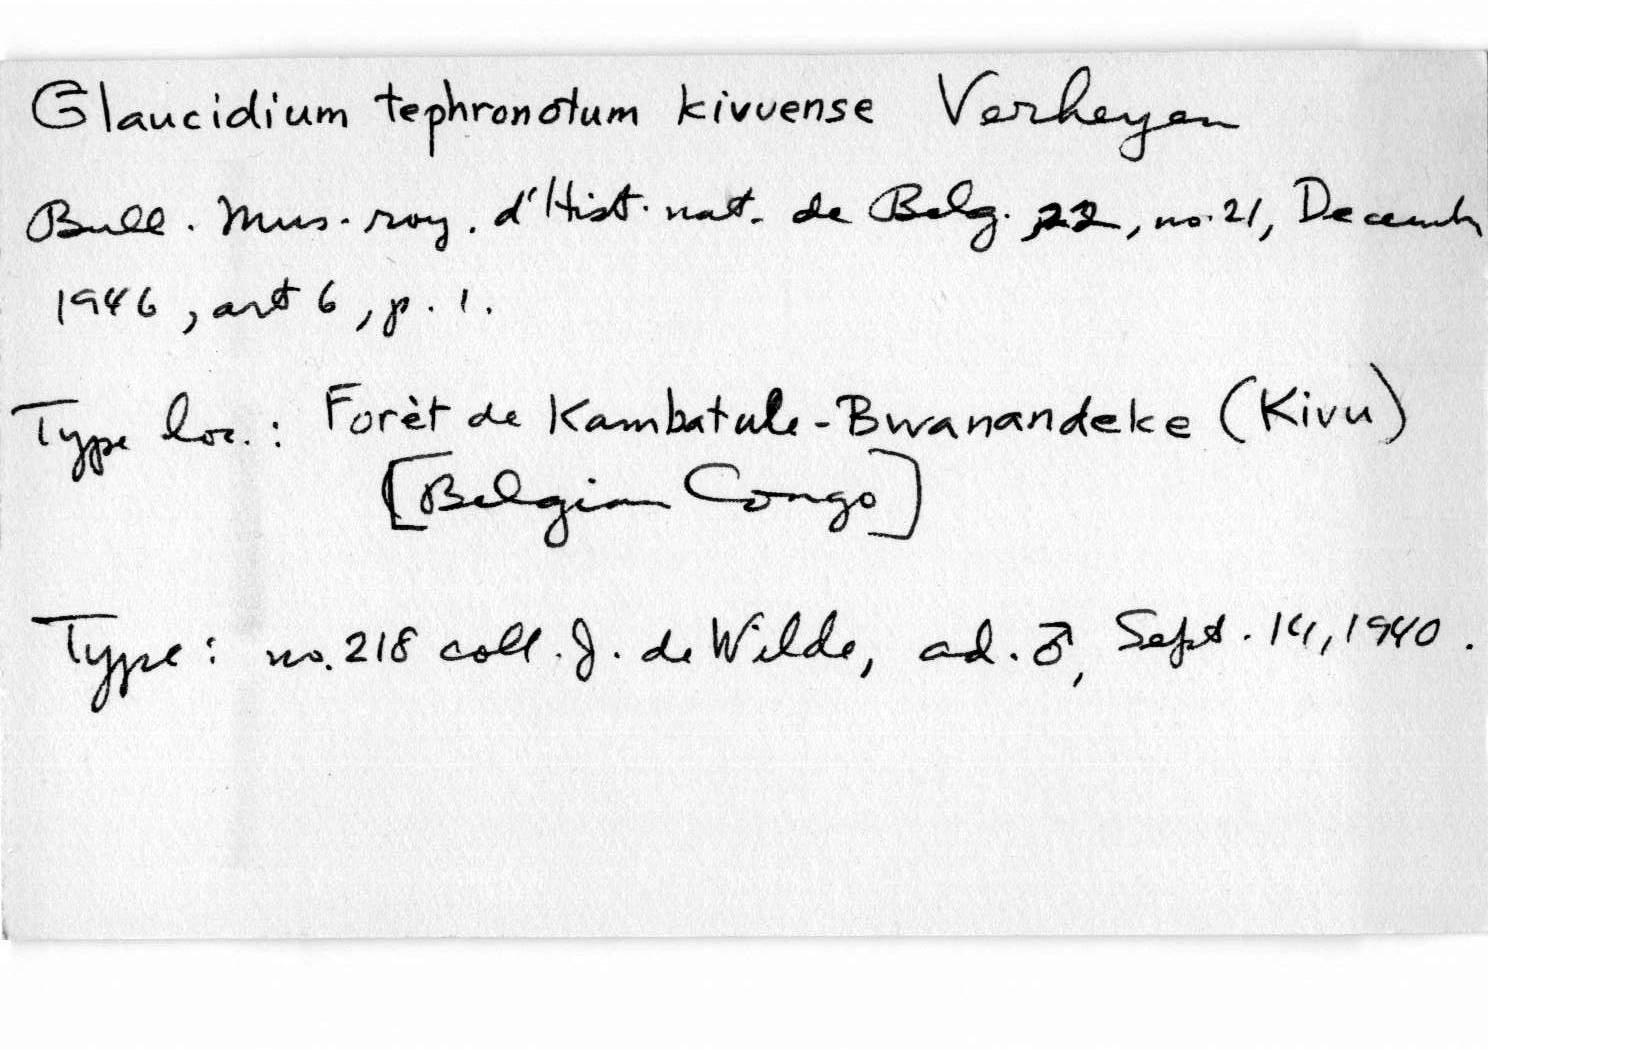 Glaucidium tephronotum kivuense Verheyen
Bull. Mus. roy. d'Hist. nat. de Belg. 22, no. 21, Decemb
1946, art 6, p. 1.
Type loc.: Forèt de Kambatule-Bwanandeke (Kivu)
[Belgian Congo]
Type: no. 218 coll. J. de Wilde, ad. ♂, Sept. 14, 1940.